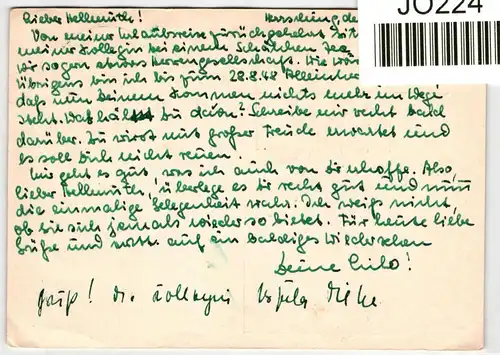 JO224
Lieber Hellmuth! Herrsching de
Von meiner Urlaubsreise zurückgekehrt sitz
meiner Kollegin bei einem Schälchen Tee
wir sogern etwas Herrengesellschaft. Wie wär
Übrigens bin ich bis zum 28.8.48 Alleinhe
daß nun Deinem Kommen nichts mehr im Wege
steht. Was hältst Du davon? Schreibe mir recht bald
darüber. Du wirst mit großer Freude erwartet und
es soll Dich nicht reuen.
Mir geht es gut, was ich auch von Dir hoffe. Also,
lieber Hellmuth, überlege es Dir recht gut und nimm
die einmalige Gelegenheit wahr. Ich weiß nicht,
ob sie sich jemals wieder so bietet. Für heute liebe
Grüße und hoffe auf ein baldiges Wiedersehen
Deine Cilo!
Gruß! die Kollegin Ursula